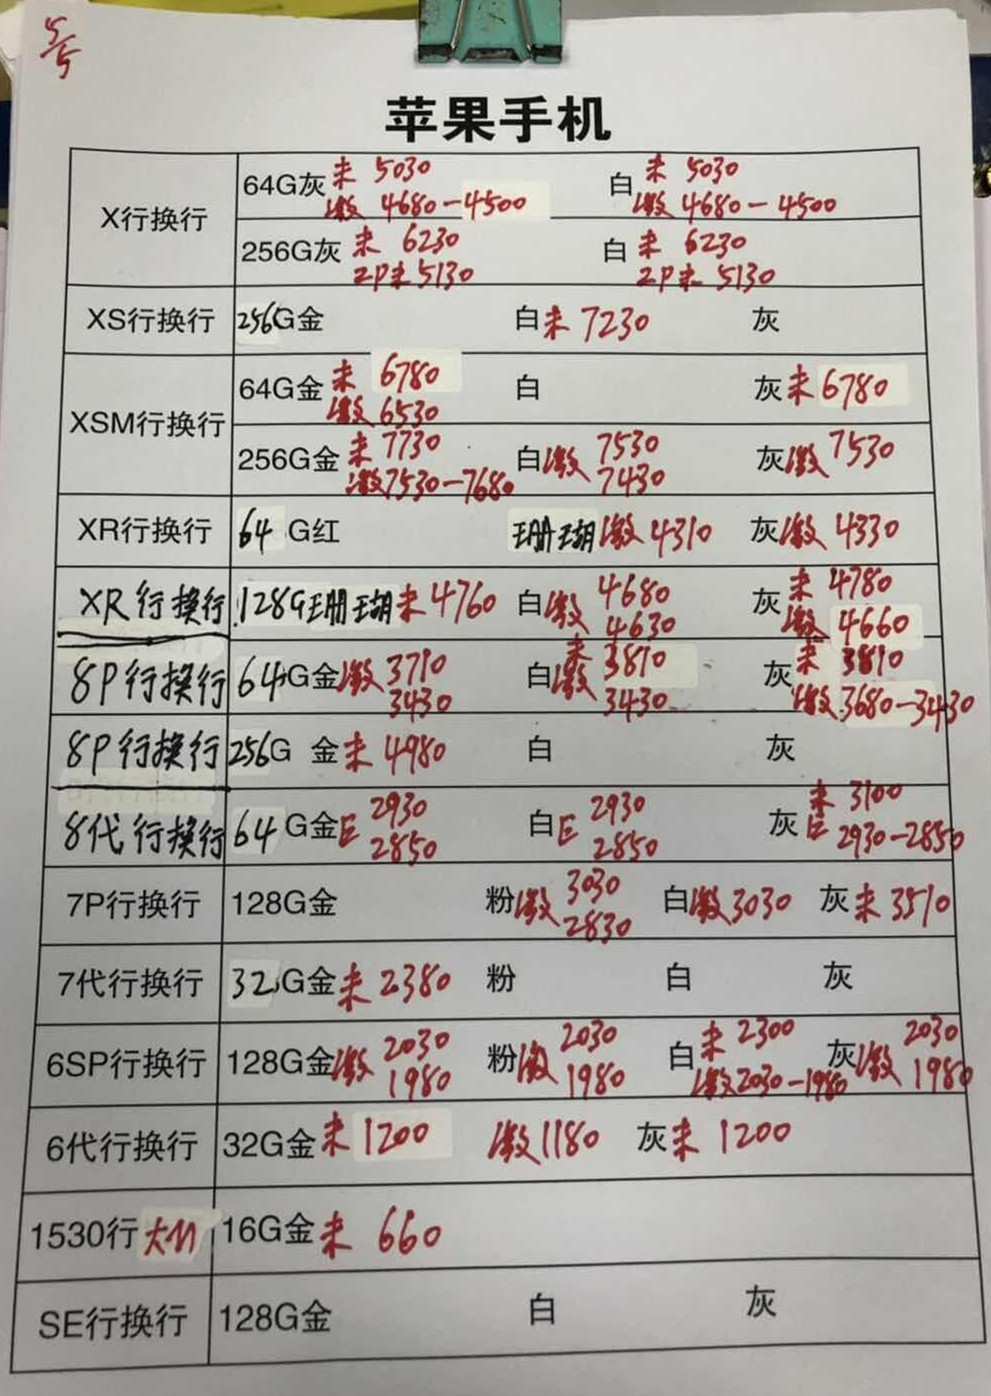 5/5
苹果手机
X行换行 64G灰 未 5030 白 未 5030
激 4680-4500 激 4680-4500
256G灰 未 6230 白 未 6230
2P未 5130 2P未 5130
XS行换行 256G金 白未 7230 灰
XSM行换行 64G金 未 6780 白 灰未 6780
激 6530
256G金 未 7730 白激 7530 灰激 7530
激7530-7680 7430
XR行换行 64 G红 珊瑚激 4310 灰激 4330
XR行换行 128G珊瑚未 4760 白激 4680 灰 未 4780
4630 激 4660
8P行换行 64G金激 3710 白 未 3810 灰 未 3810
3430 激 3430 激 3680-3430
8P行换行 256G 金未 4980 白 灰
8代行换行 64 G金E 2930 白E 2930 灰 未 3100
2850 2850 E 2930-2850
7P行换行 128G金 粉激 3030 白激3030 灰未 3510
2830
7代行换行 32G金未 2380 粉 白 灰
6SP行换行 128G金激 2030 粉激 2030 白未 2300 灰激 2030
1980 1980 激2030-1980 1980
6代行换行 32G金未 1200 激1180 灰未 1200
1530行 16G金未 660
SE行换行 128G金 白 灰